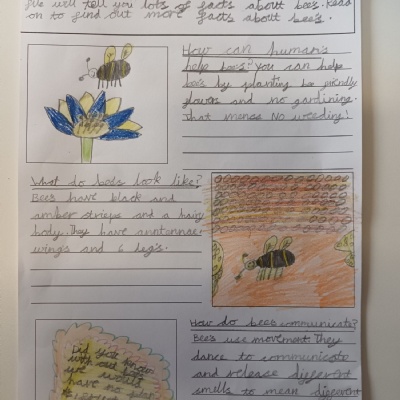 We will tell you lots of facts about bees. Read
on to find out more facts about bee's.
How can human's
help bees? you can help
bee's by planting be friendly
flowers and no gardining.
That mense NO weeding!
What do bees look like?
Bees have black and
amber stripes and a hairy
body. They have anntennaer
wings and 6 leg's.
How do bees communicate?
Bees use movement. They
dance to communicate
and release different
smells to mean different
Did you know
without bees
we would
have no